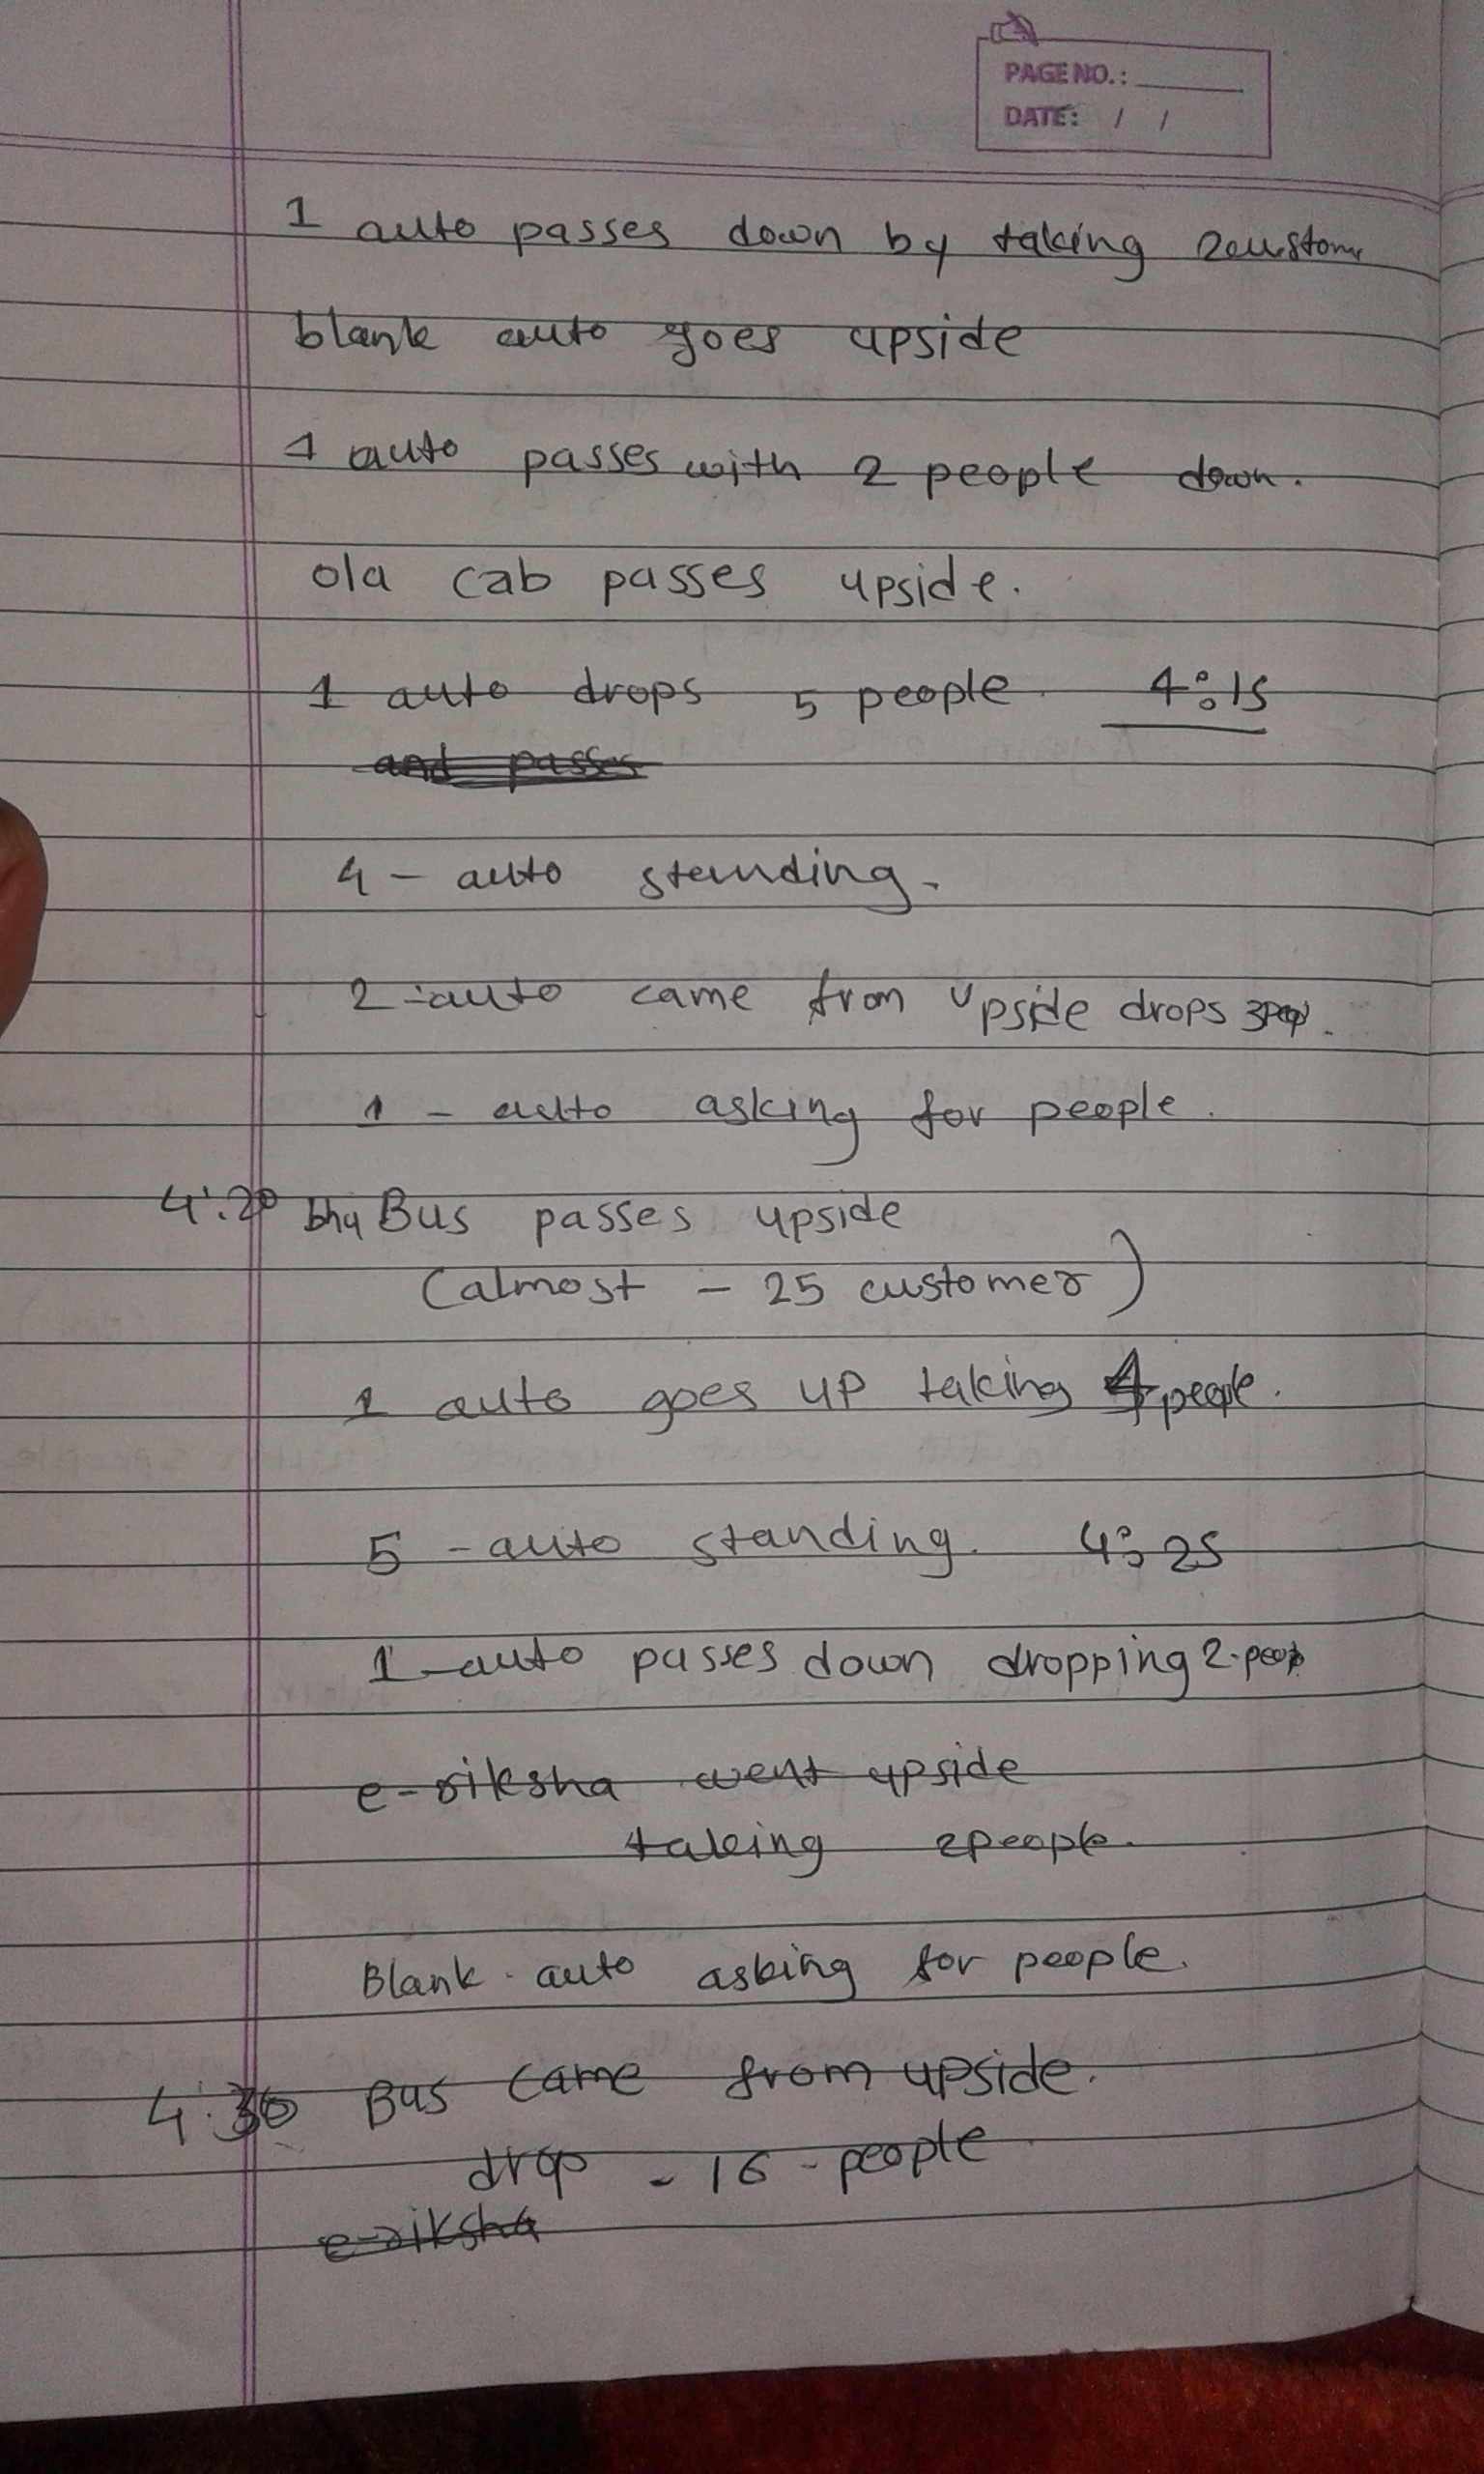 PAGE NO.:
DATE: / /
1 auto passes down by taking 2custom
blank auto goes upside
1 auto passes with 2 people down.
ola cab passes upside.
1 auto drops 5 people. 4:15
and passes
4 - auto standing.
2-auto came from upside drops 3
1 - auto asking for people.
4:20 Bus passes upside
(almost - 25 customer)
1 auto goes up taking 4 people.
5 - auto standing. 4:25
1-auto passes down dropping 2-peop
e-riksha went upside
taking 2people.
Blank auto asking for people.
4:30 Bus came from upside.
drop - 16 - people
e-riksha